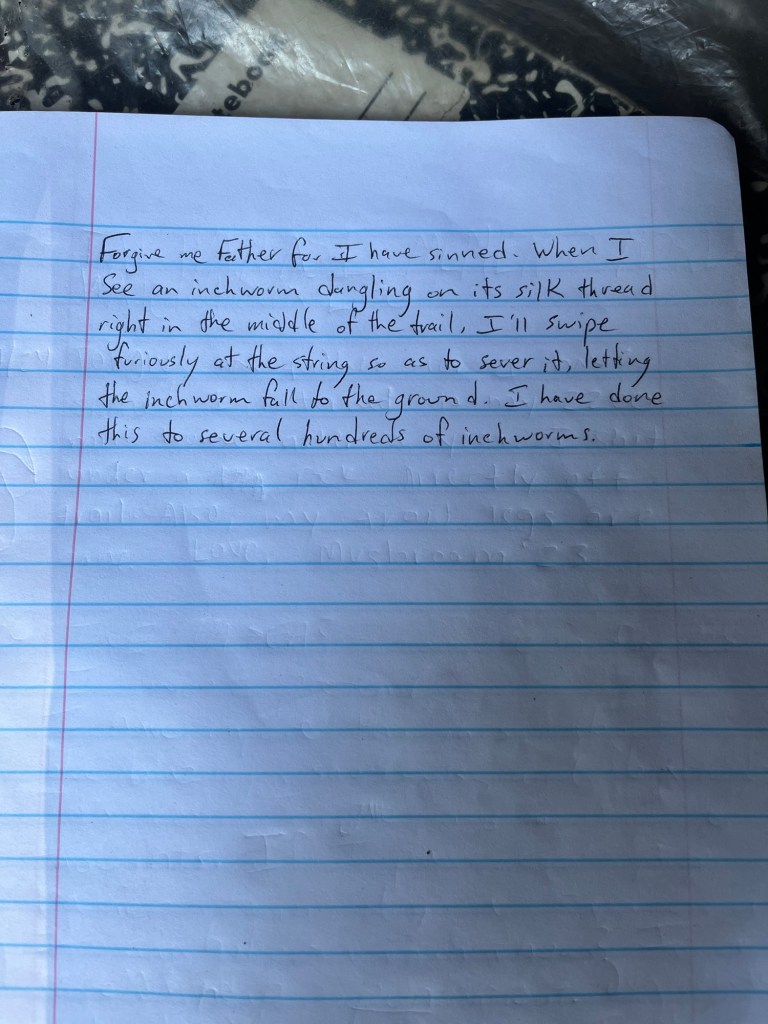 tebook
Forgive me Father for I have sinned. When I
See an inchworm dangling on its silk thread
right in the middle of the trail, I'll swipe
furiously at the string so as to sever it, letting
the inchworm fall to the ground. I have done
this to several hundreds of inchworms.